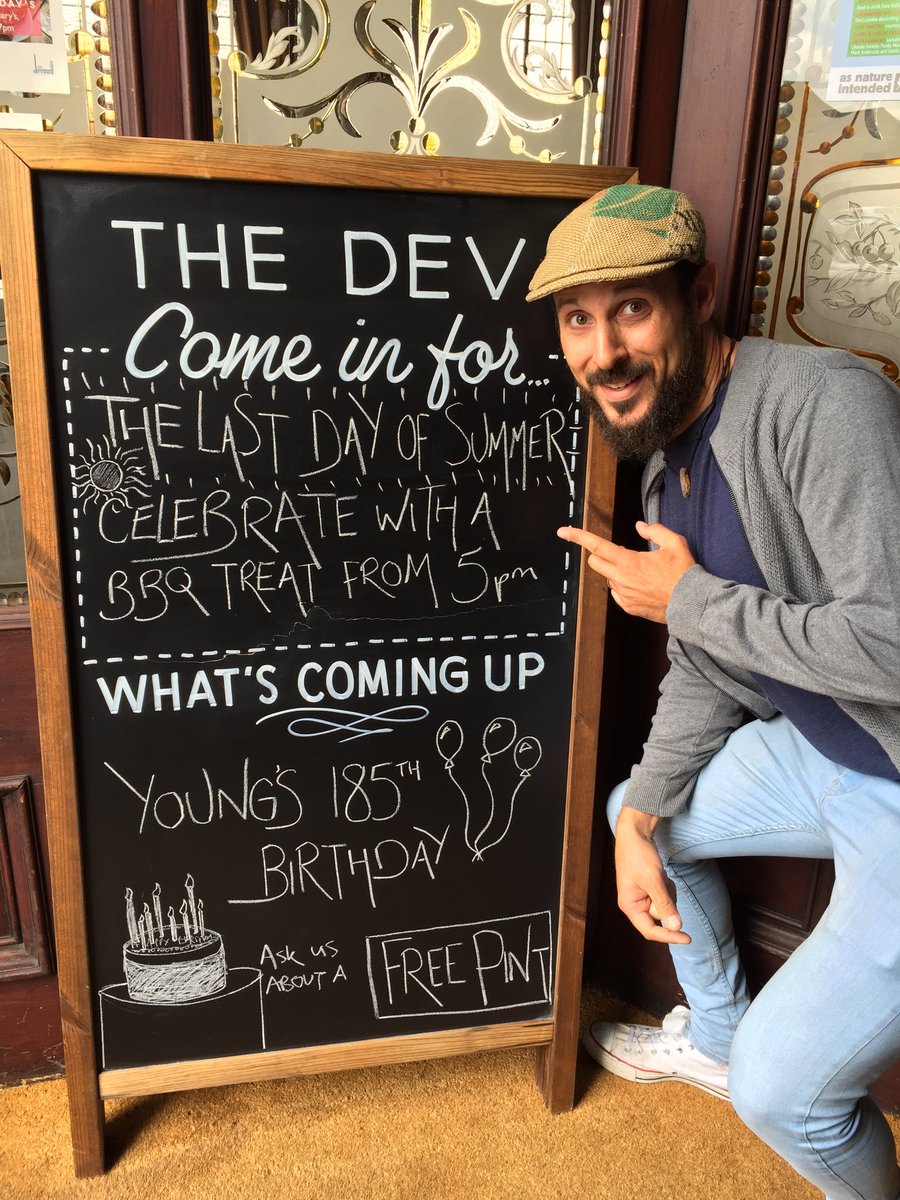 THE DEV
Come in for...
THE LAST DAY OF SUMMER
CELEBRATE WITH A
BBQ TREAT FROM 5pm
WHAT'S COMING UP
YOUNG'S 185TH
BIRTHDAY
ASK US
ABOUT A
FREE PINT
as nature
intended